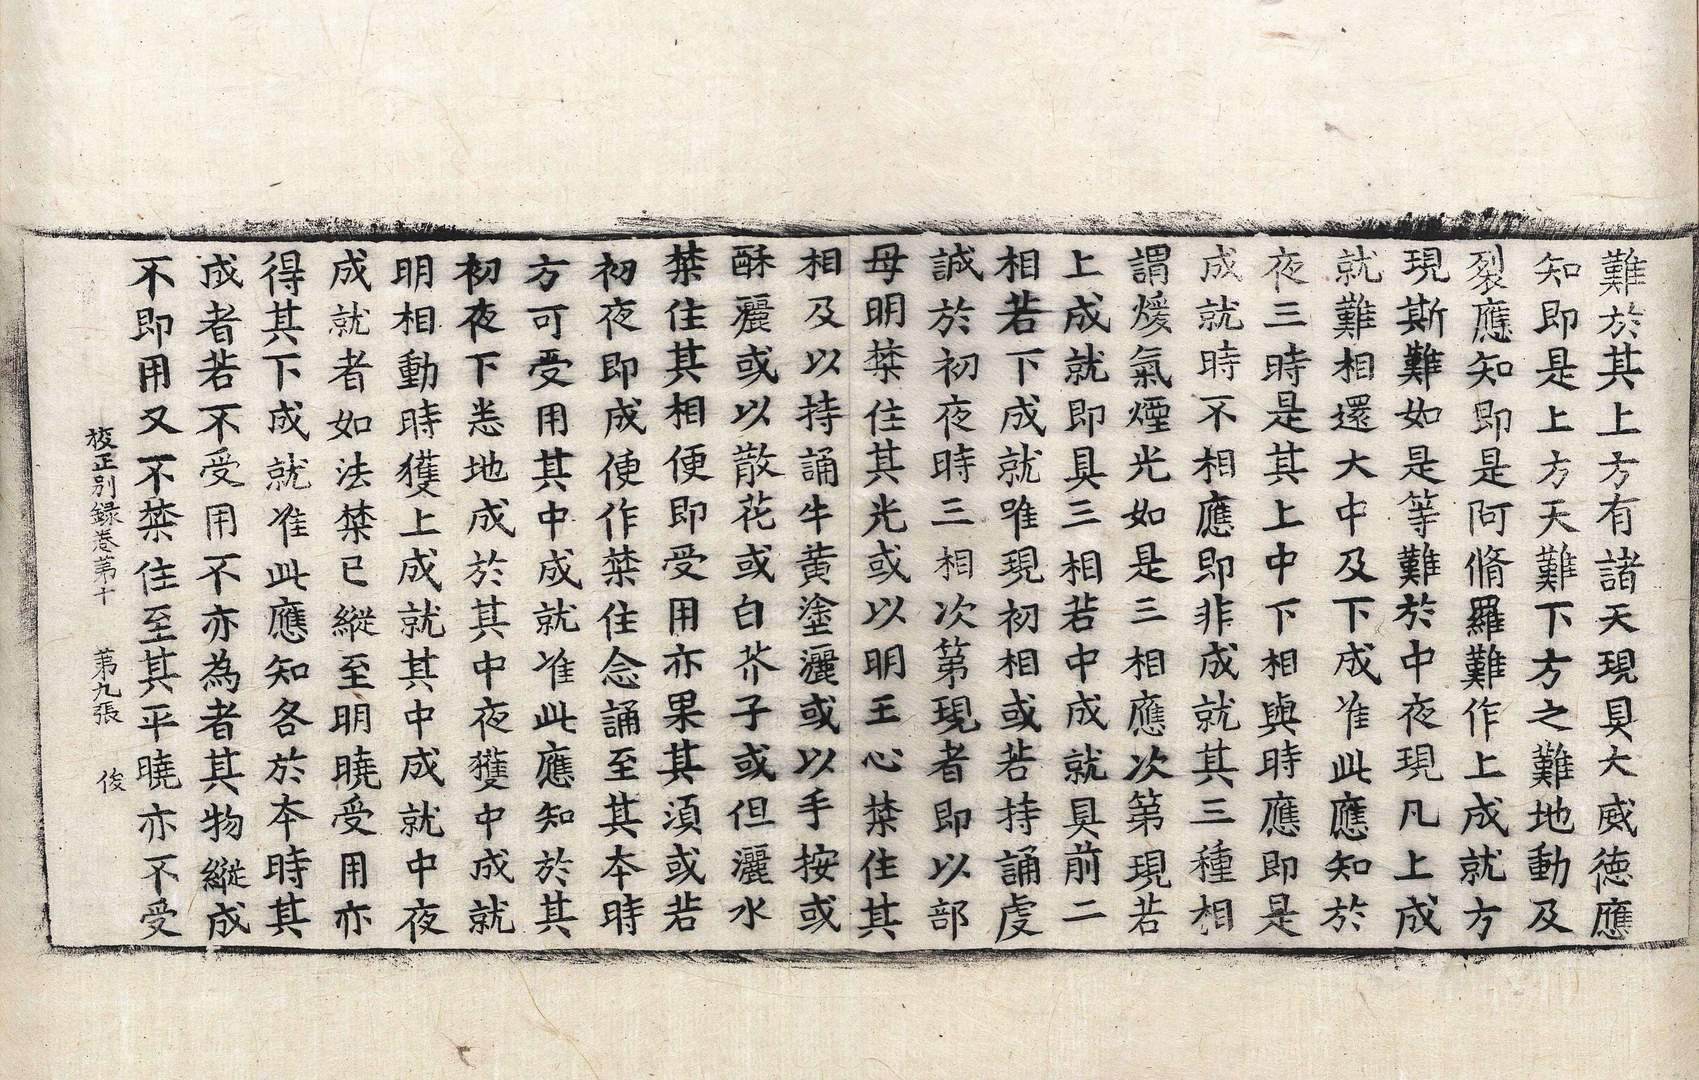 難於其上方有諸天現具大威徳應
知即是上方天難下方之難地動及
裂應知即是阿脩羅難作上成就方
現斯難如是等難於中夜現凡上成
就難相還大中及下成准此應知於
夜三時是其上中下相與時應即是
成就時不相應即非成就其三種相
謂煖氣煙光如是三相應次第現若
上成就即具三相若中成就具前二
相若下成就唯現初相或若持誦虔
誠於初夜時三相次第現者即以部
母明禁住其光或以明王心禁住其
相及以持誦牛黄塗灑或以手按或
酥灑或以散花或白芥子或但灑水
禁住其相便即受用亦果其湏或若
初夜即成使作禁住念誦至其本時
方可受用其中成就准此應知於其
初夜下悉地成於其中夜獲中成就
明相動時獲上成就其中成就中夜
成就者如法禁已縱至明曉受用亦
得其下成就准此應知各於本時其
成者若不受用不亦為者其物縱成
不即用又不禁住至其平曉亦不受
挍正别録卷第十 第九張 俊